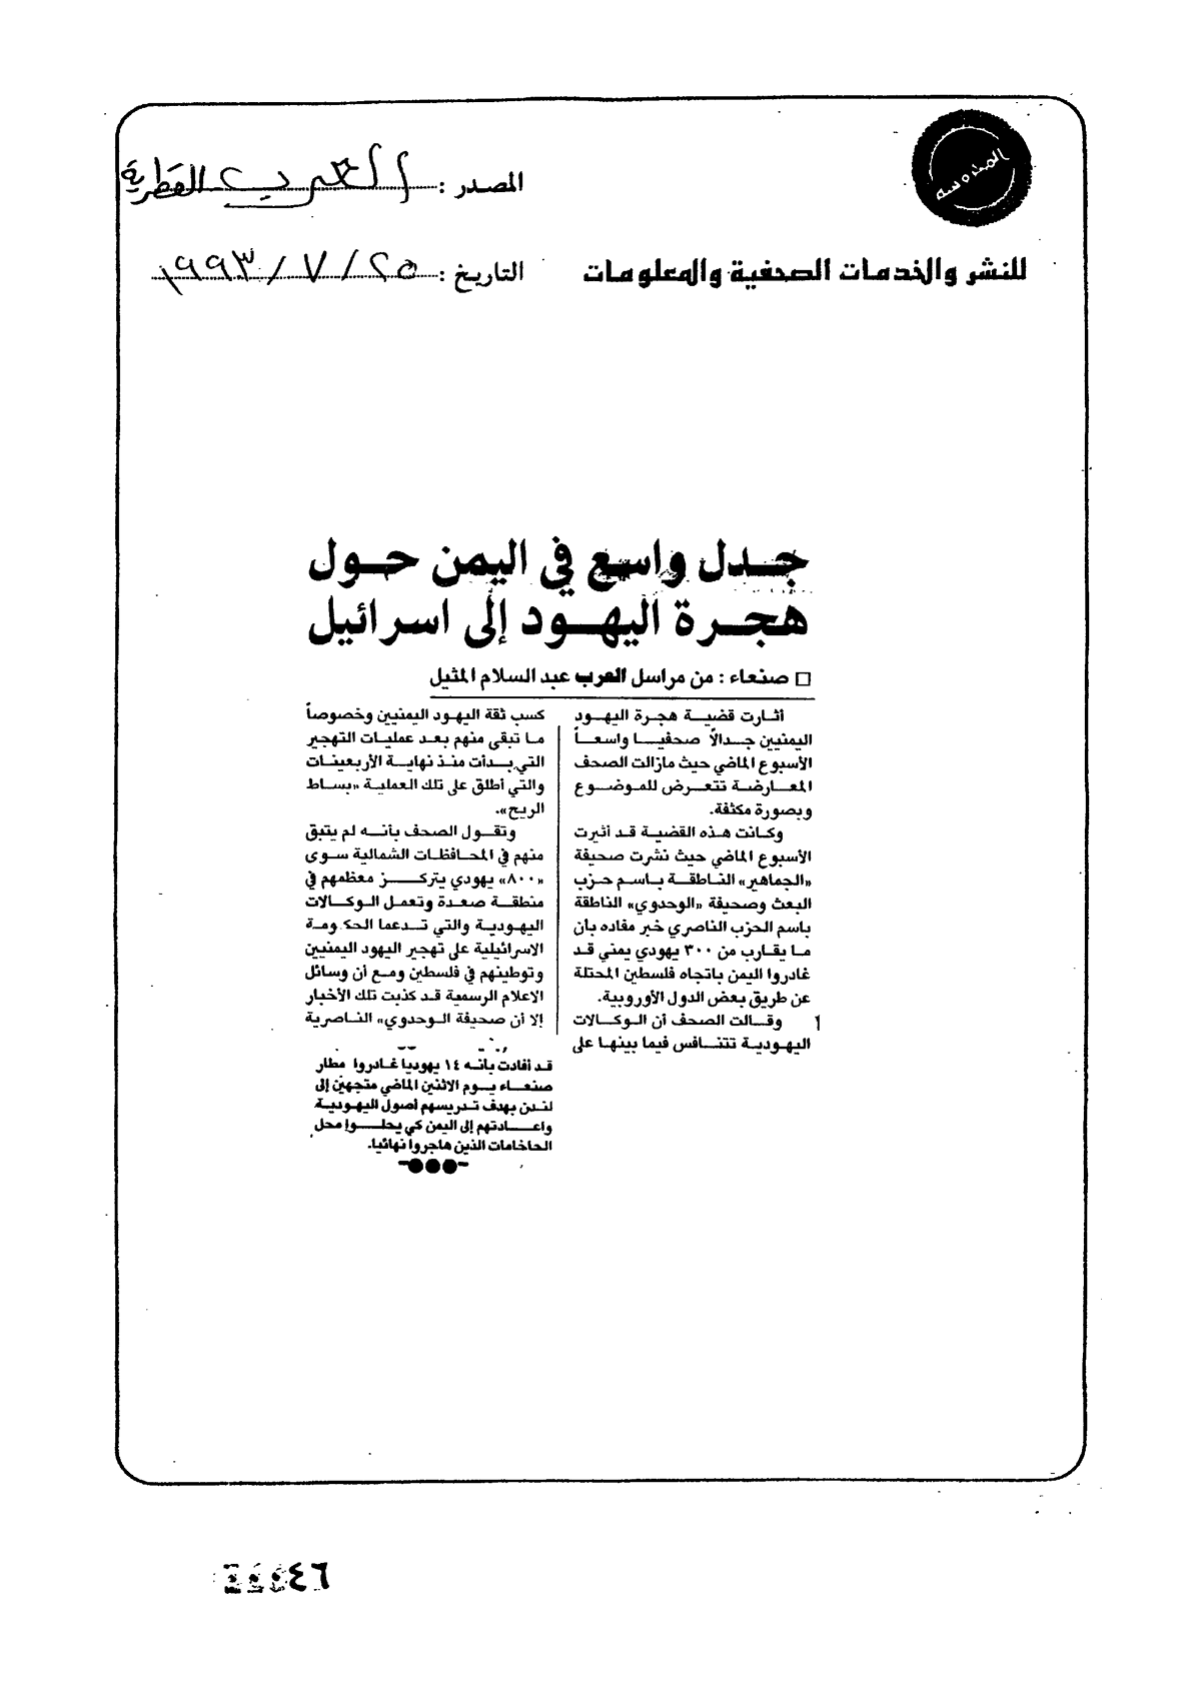 المصدر : العرب القطرية
للنشر والخدمات الصحفية والمعلومات
التاريخ : ٢٥ / ٧ / ١٩٩٣
جدل واسع في اليمن حول
هجرة اليهود إلى اسرائيل
□ صنعاء : من مراسل العرب عبد السلام المثيل
أثارت قضية هجرة اليهود
اليمنيين جدالاً صحفيا واسعاً
الأسبوع الماضي حيث مازالت الصحف
المعارضة تتعرض للموضوع
وبصورة مكثفة.
وكانت هذه القضية قد أثيرت
الأسبوع الماضي حيث نشرت صحيفة
«الجماهير» الناطقة باسم حزب
البعث وصحيفة «الوحدوي» الناطقة
باسم الحزب الناصري خبر مفاده بأن
ما يقارب من ٣٠٠ يهودي يمني قد
غادروا اليمن باتجاه فلسطين المحتلة
عن طريق بعض الدول الأوروبية.
وقالت الصحف أن الوكالات
اليهودية تتنافس فيما بينها على
كسب ثقة اليهود اليمنيين وخصوصاً
ما تبقى منهم بعد عمليات التهجير
التي بدأت منذ نهاية الأربعينات
والتي أطلق على تلك العملية «بساط
الريح».
وتقول الصحف بأنه لم يتبق
منهم في المحافظات الشمالية سوى
«٨٠٠» يهودي يتركز معظمهم في
منطقة صعدة وتعمل الوكالات
اليهودية والتي تدعما الحكومة
الاسرائيلية على تهجير اليهود اليمنيين
وتوطينهم في فلسطين ومع أن وسائل
الاعلام الرسمية قد كذبت تلك الأخبار
إلا أن صحيفة الوحدوي» الناصرية
قد أفادت بأنه ١٤ يهوديا غادروا مطار
صنعاء يوم الاثنين الماضي متجهين إلى
لندن بهدف تدريسهم أصول اليهودية
واعادتهم إلى اليمن كي يحلوا محل
الحاخامات الذين هاجروا نهائيا.